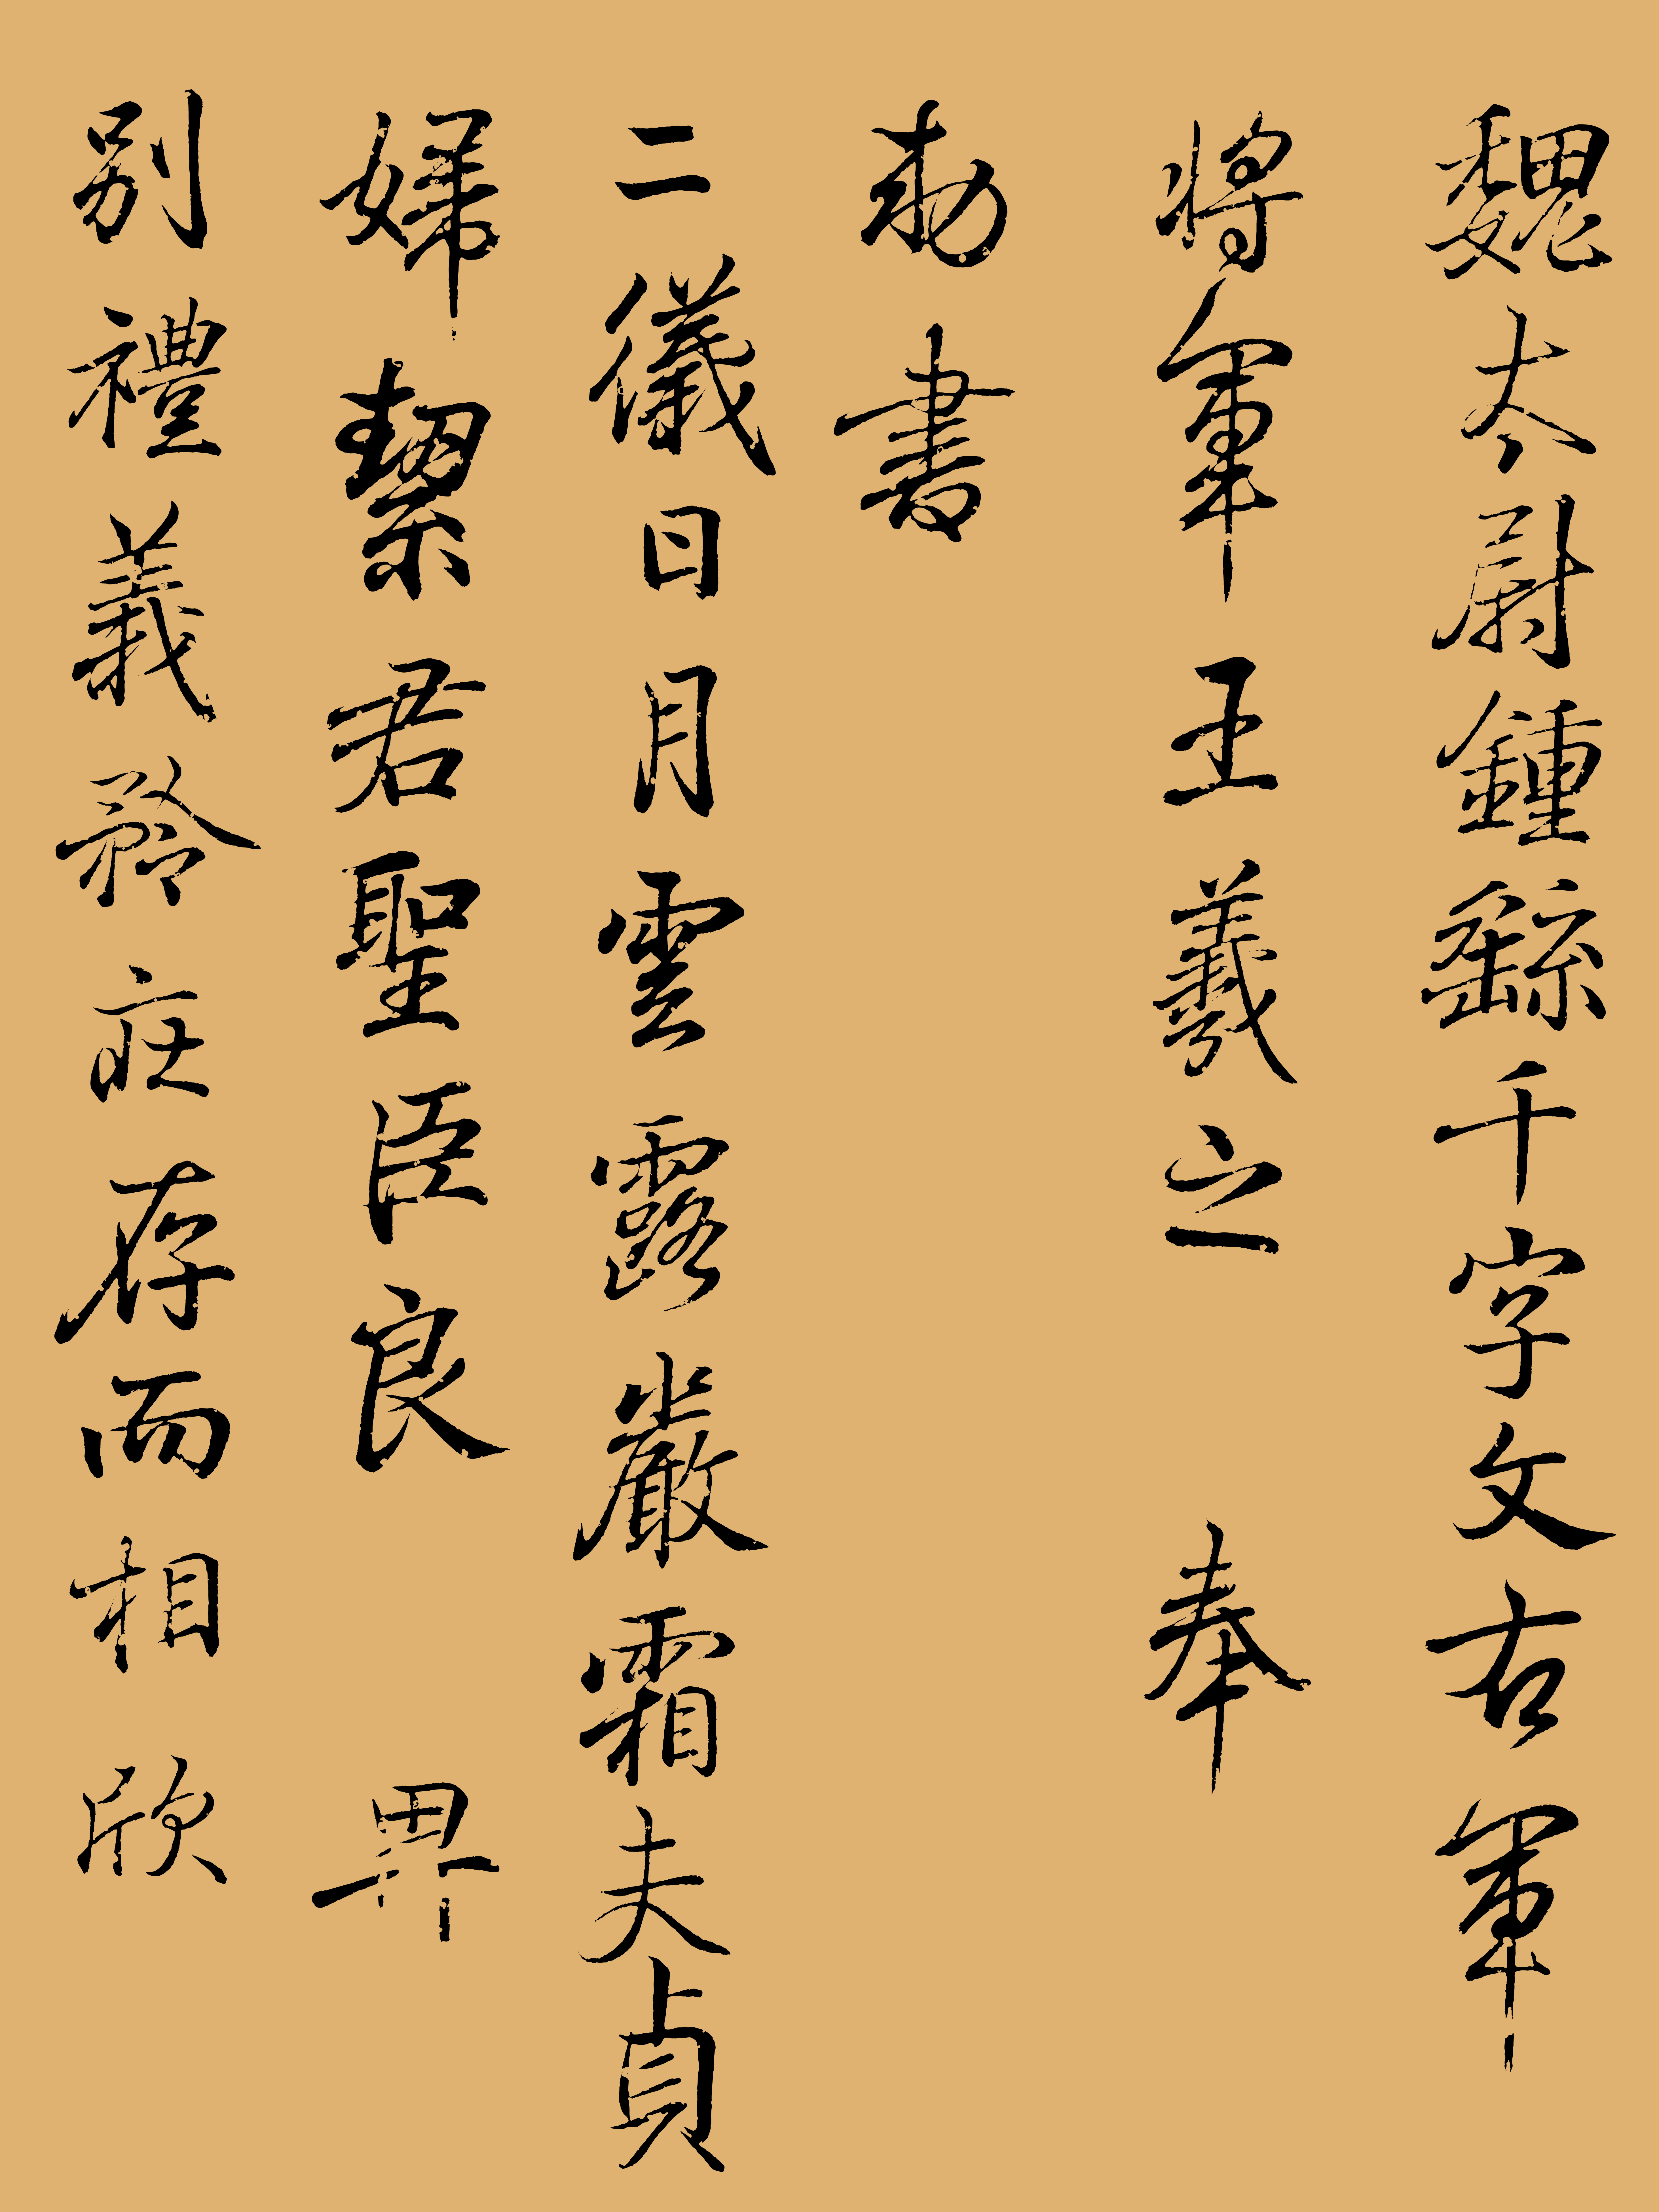 魏太尉鍾繇千字文右軍
將軍王羲之 奉
勅書
二儀日月雲露嚴霜夫貞
婦絜君聖臣良 卑
別禮義矜庄存而相欣